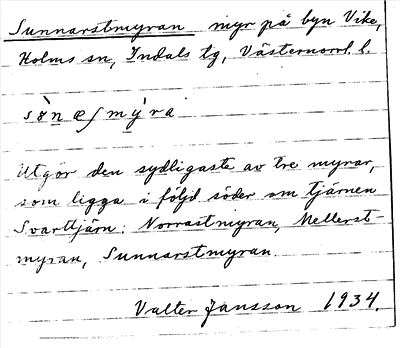 Sunnarstmyran myr på byn Vike,
Holms sn, Indals tg, Västernorrl. l.
Utgör den sydligaste av tre myrar,
som ligga i följd söder om tjärnen
Svarttjärn: Norrastmyran, Mellerst-
myran, Sunnarstmyran.
Valter Jansson 1934.